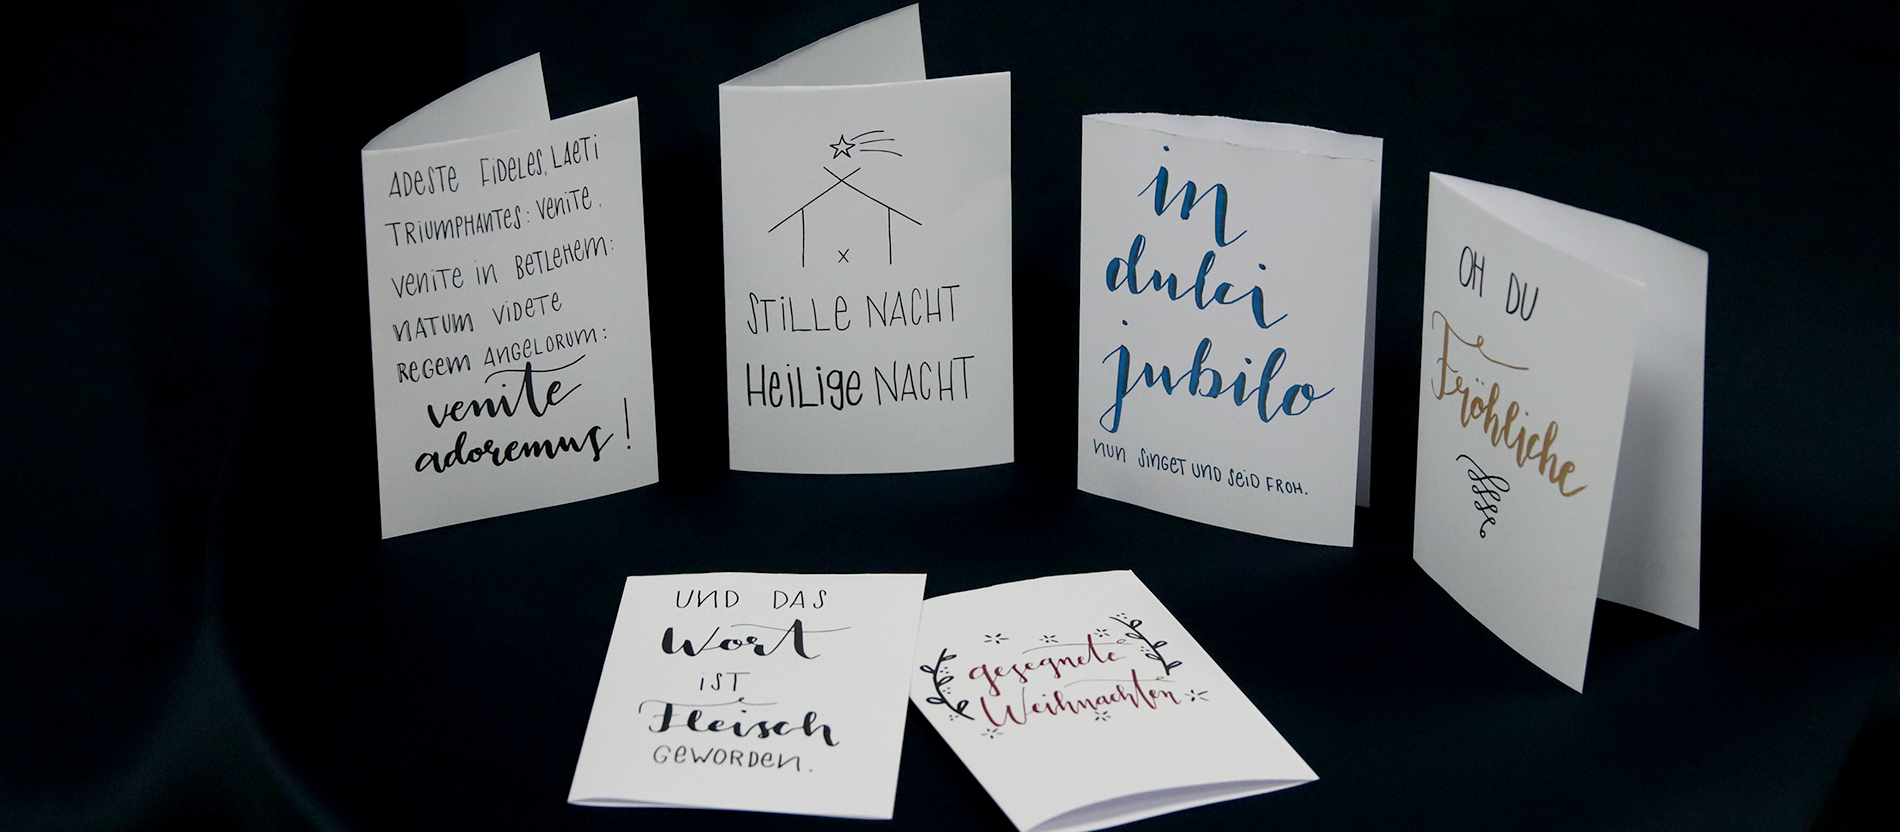 ADESTE FIDELES, LAETI
TRIUMPHANTES: VENITE,
VENITE IN BETLEHEM:
NATUM VIDETE
REGEM ANGELORUM:
venite
adoremus!
STILLE NACHT
HEILIGE NACHT
in
dulci
jubilo
NUN SINGET UND SEID FROH.
OH DU
Fröhliche
UND DAS
Wort
IST
Fleisch
GEWORDEN.
gesegnete
Weihnachten